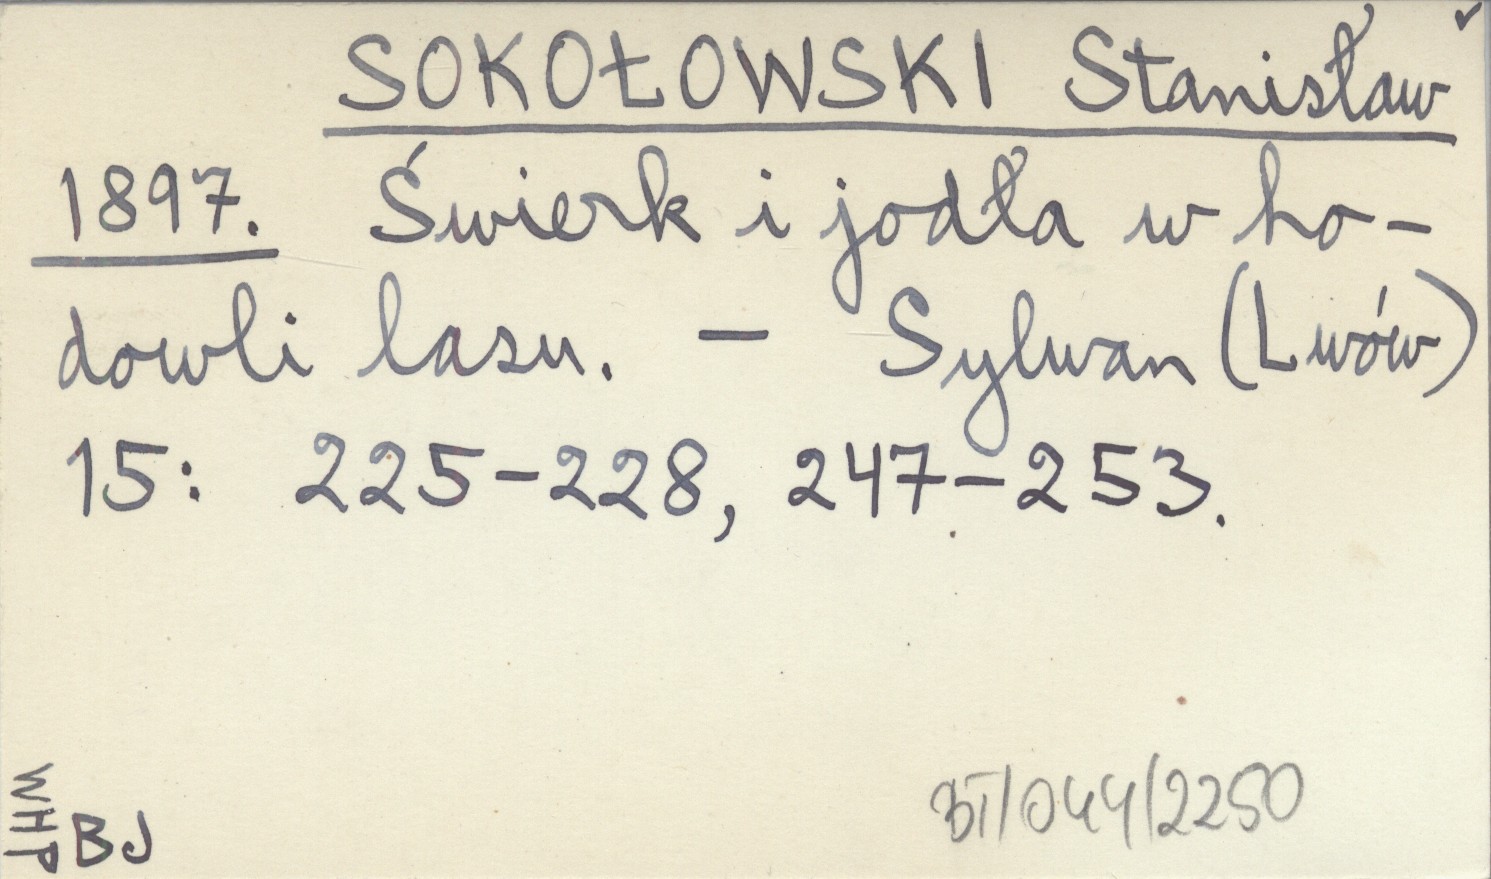 SOKOŁOWSKI Stanisław ✓
1897. Świerk i jodła w ho-
dowli lasu. — Sylwan (Lwów)
15: 225-228, 247-253.
WHP
BJ
BT/044/2250